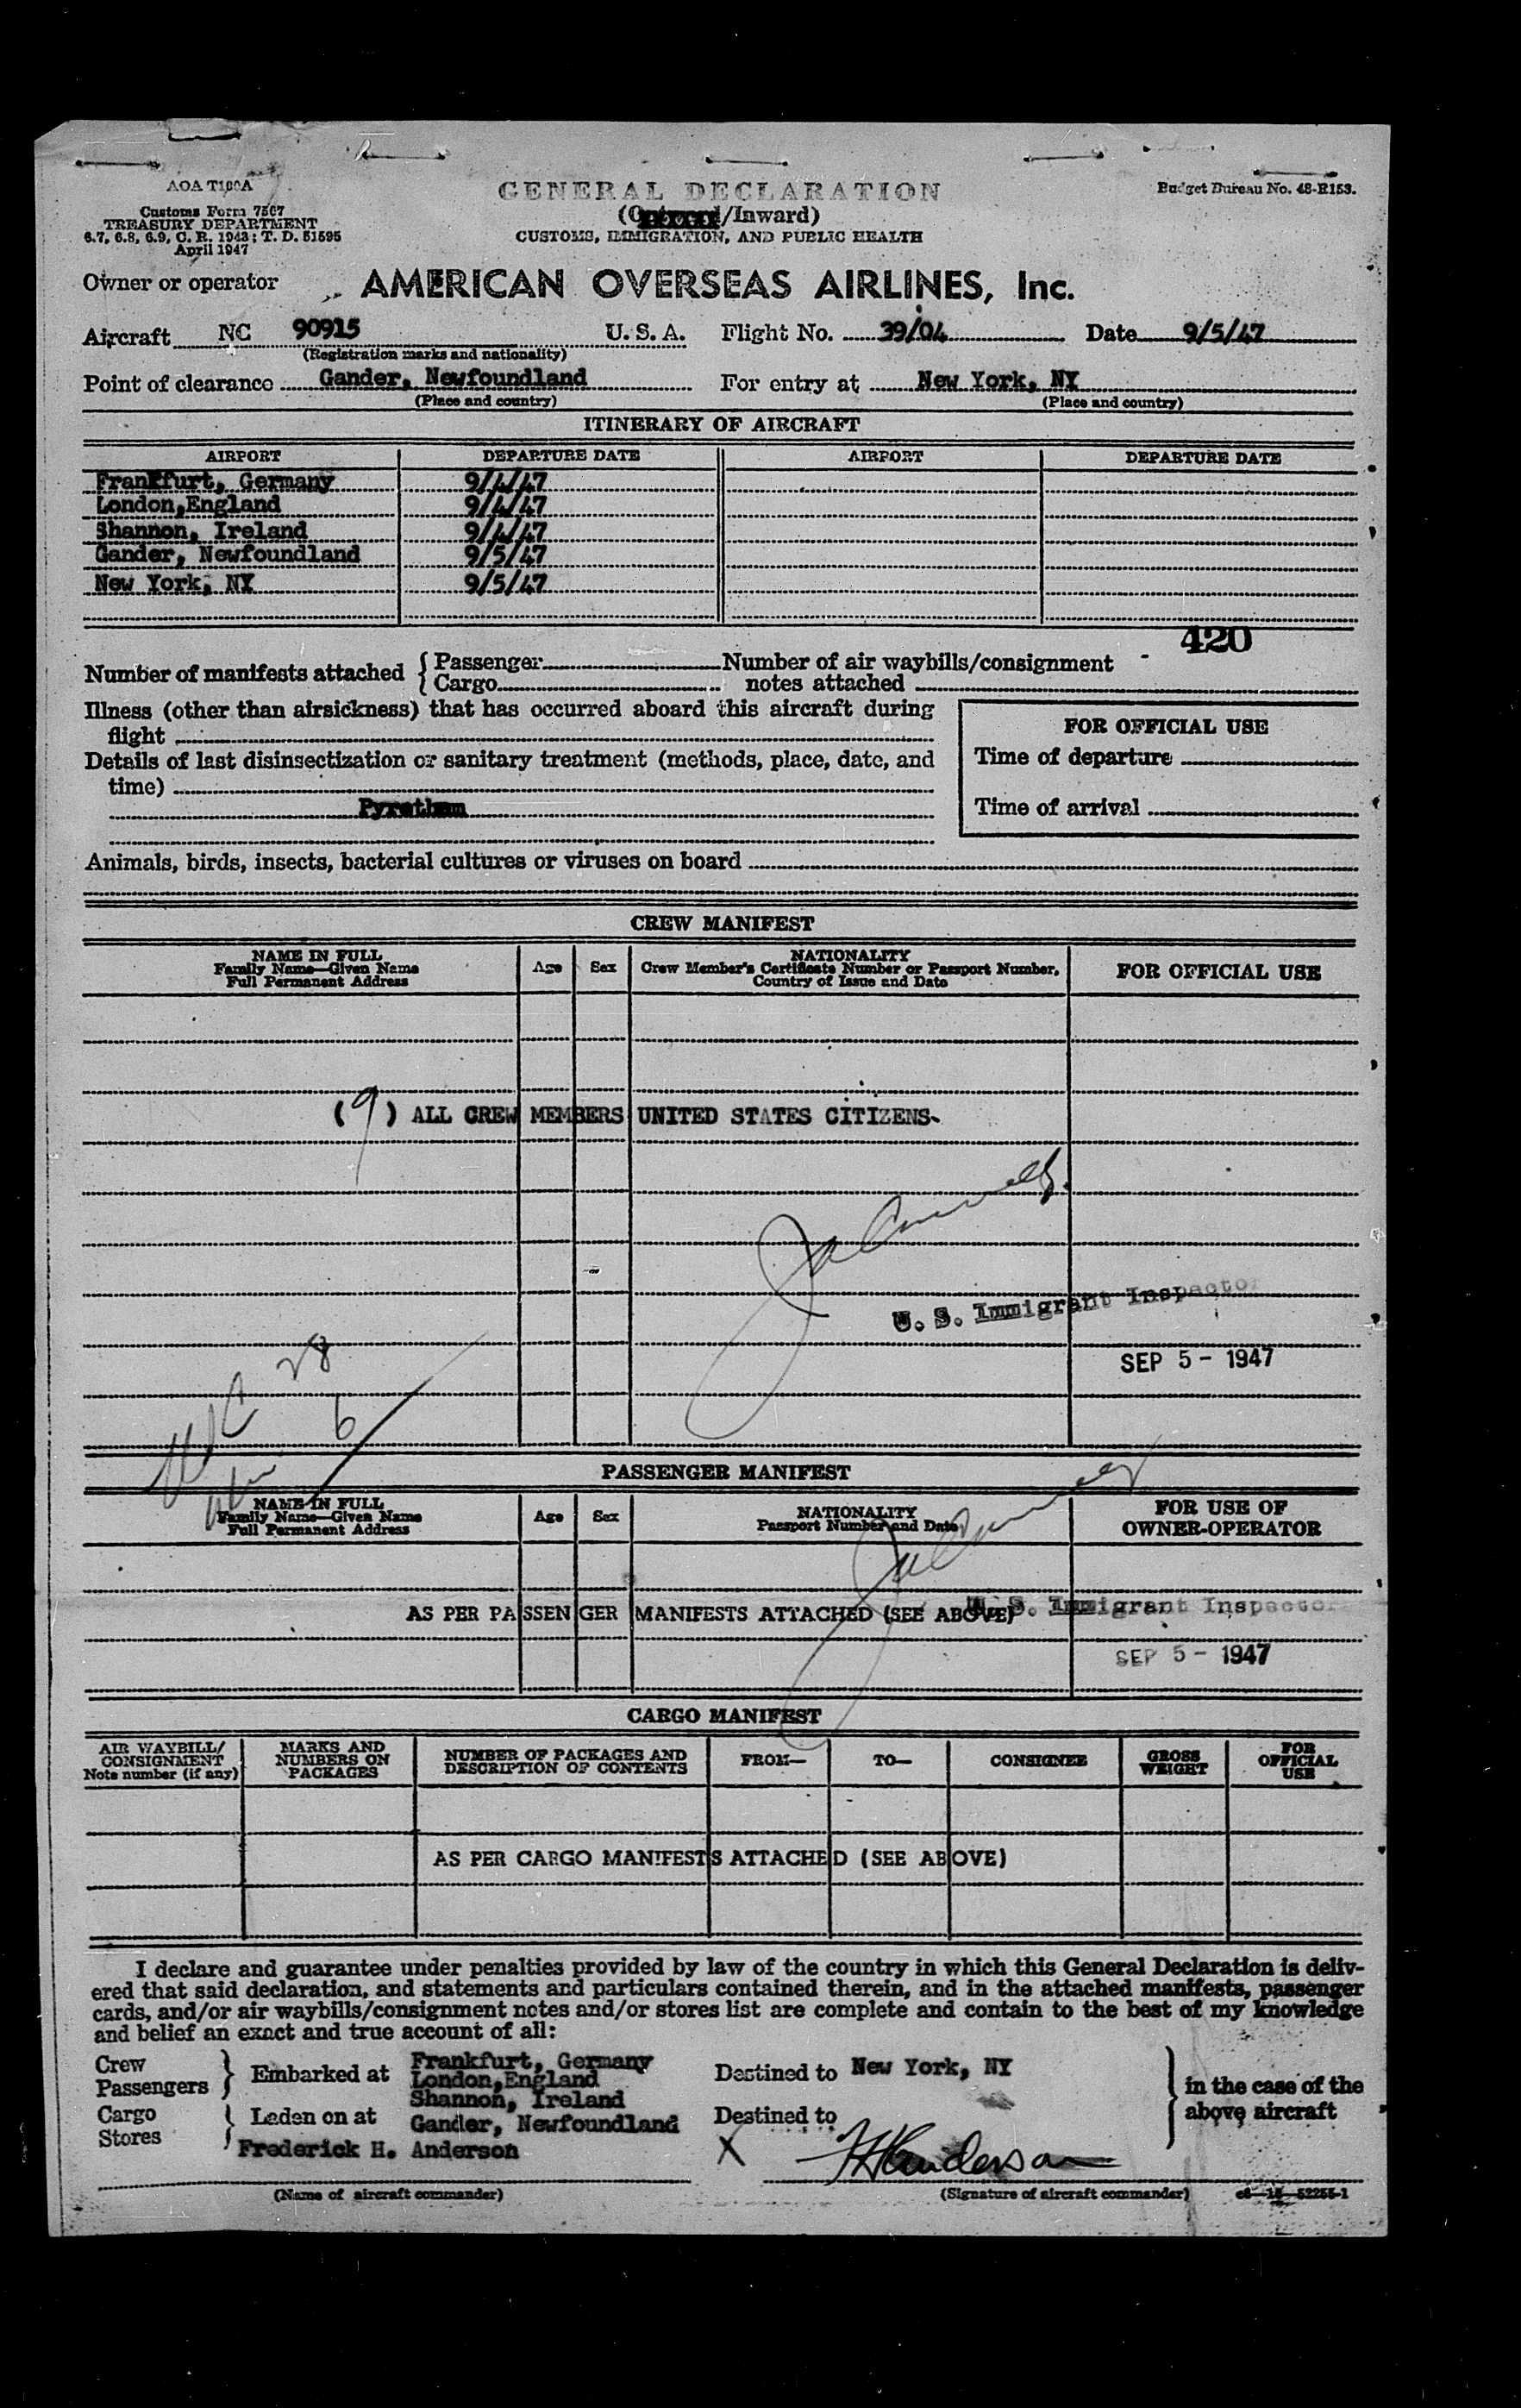 AOA T100A
GENERAL DECLARATION
Budget Bureau No. 48-R153.
Customs Form 7507
(Outward/Inward)
TREASURY DEPARTMENT
6.7, 6.8, 6.9, C. R. 1943; T. D. 51595
CUSTOMS, IMMIGRATION, AND PUBLIC HEALTH
April 1947
Owner or operator AMERICAN OVERSEAS AIRLINES, Inc.
Aircraft NC 90915 U. S. A. Flight No. 39/04 Date 9/5/47
(Registration marks and nationality)
Point of clearance Gander, Newfoundland For entry at New York, NY
(Place and country) (Place and country)
ITINERARY OF AIRCRAFT
AIRPORT DEPARTURE DATE AIRPORT DEPARTURE DATE
Frankfurt, Germany 9/4/47
London,England 9/4/47
Shannon, Ireland 9/4/47
Gander, Newfoundland 9/5/47
New York, NY 9/5/47
420
Number of manifests attached { Passenger Number of air waybills/consignment
Cargo notes attached
Illness (other than airsickness) that has occurred aboard this aircraft during
flight
FOR OFFICIAL USE
Details of last disinsectization or sanitary treatment (methods, place, date, and
time)
Time of departure
Pyrethum
Time of arrival
Animals, birds, insects, bacterial cultures or viruses on board
CREW MANIFEST
NAME IN FULL
Family Name—Given Name
Full Permanent Address
Age Sex
NATIONALITY
Crew Member's Certificate Number or Passport Number,
Country of Issue and Date
FOR OFFICIAL USE
(9) ALL CREW MEMBERS UNITED STATES CITIZENS
U. S. Immigrant Inspector
28
SEP 5 - 1947
6
PASSENGER MANIFEST
NAME IN FULL
Family Name—Given Name
Full Permanent Address
Age Sex
NATIONALITY
Passport Number and Date
FOR USE OF
OWNER-OPERATOR
AS PER PASSENGER MANIFESTS ATTACHED (SEE ABOVE)
U. S. Immigrant Inspector
SEP 5 - 1947
CARGO MANIFEST
AIR WAYBILL/
CONSIGNMENT
Note number (if any)
MARKS AND
NUMBERS ON
PACKAGES
NUMBER OF PACKAGES AND
DESCRIPTION OF CONTENTS
FROM— TO— CONSIGNEE
GROSS
WEIGHT
FOR
OFFICIAL
USE
AS PER CARGO MANIFESTS ATTACHED (SEE ABOVE)
I declare and guarantee under penalties provided by law of the country in which this General Declaration is deliv-
ered that said declaration, and statements and particulars contained therein, and in the attached manifests, passenger
cards, and/or air waybills/consignment notes and/or stores list are complete and contain to the best of my knowledge
and belief an exact and true account of all:
Crew
Passengers } Embarked at
Frankfurt, Germany
London,England
Shannon, Ireland
Gander, Newfoundland
Destined to New York, NY
in the case of the
above aircraft
Cargo
Stores } Laden on at
Destined to
Frederick H. Anderson
X FHAnderson
(Name of aircraft commander) (Signature of aircraft commander) c6—16—52255-1